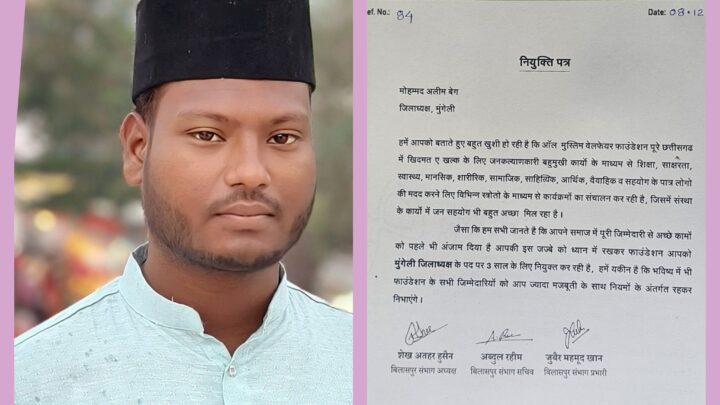 ef. No.: 94 Date: 08.12
नियुक्ति पत्र
मोहम्मद अलीम बेग
जिलाध्यक्ष, मुंगेली
हमें आपको बताते हुए बहुत खुशी हो रही है कि ऑल मुस्लिम वेलफेयर फाउंडेशन पूरे छत्तीसगढ
में खिदमत ए खल्क के लिए जनकल्याणकारी बहुमुखी कार्यो के माध्यम से शिक्षा, साक्षरता,
स्वास्थ्य, मानसिक, शारीरिक, सामाजिक, साहित्यिक, आर्थिक, वैवाहिक व सहयोग के पात्र लोगो
की मदद करने लिए विभिन्न स्त्रोतो के माध्यम से कार्यक्रमों का संचालन कर रही है, जिसमें संस्था
के कार्यो में जन सहयोग भी बहुत अच्छा मिल रहा है ।
जैसा कि हम सभी जानते है कि आपने समाज में पूरी जिम्मेदारी से अच्छे कामों
को पहले भी अंजाम दिया है आपकी इस जज्बे को ध्यान में रखकर फाउंडेशन आपको
मुंगेली जिलाध्यक्ष के पद पर 3 साल के लिए नियुक्त कर रही है, हमें यकीन है कि भविष्य में भी
फाउंडेशन के सभी जिम्मेदारियों को आप ज्यादा मजबूती के साथ नियमों के अंतर्गत रहकर
निभाएंगे ।
शेख अतहर हुसैन अब्दुल रहीम जुबैर महमूद खान
बिलासपुर संभाग अध्यक्ष बिलासपुर संभाग सचिव बिलासपुर संभाग प्रभारी